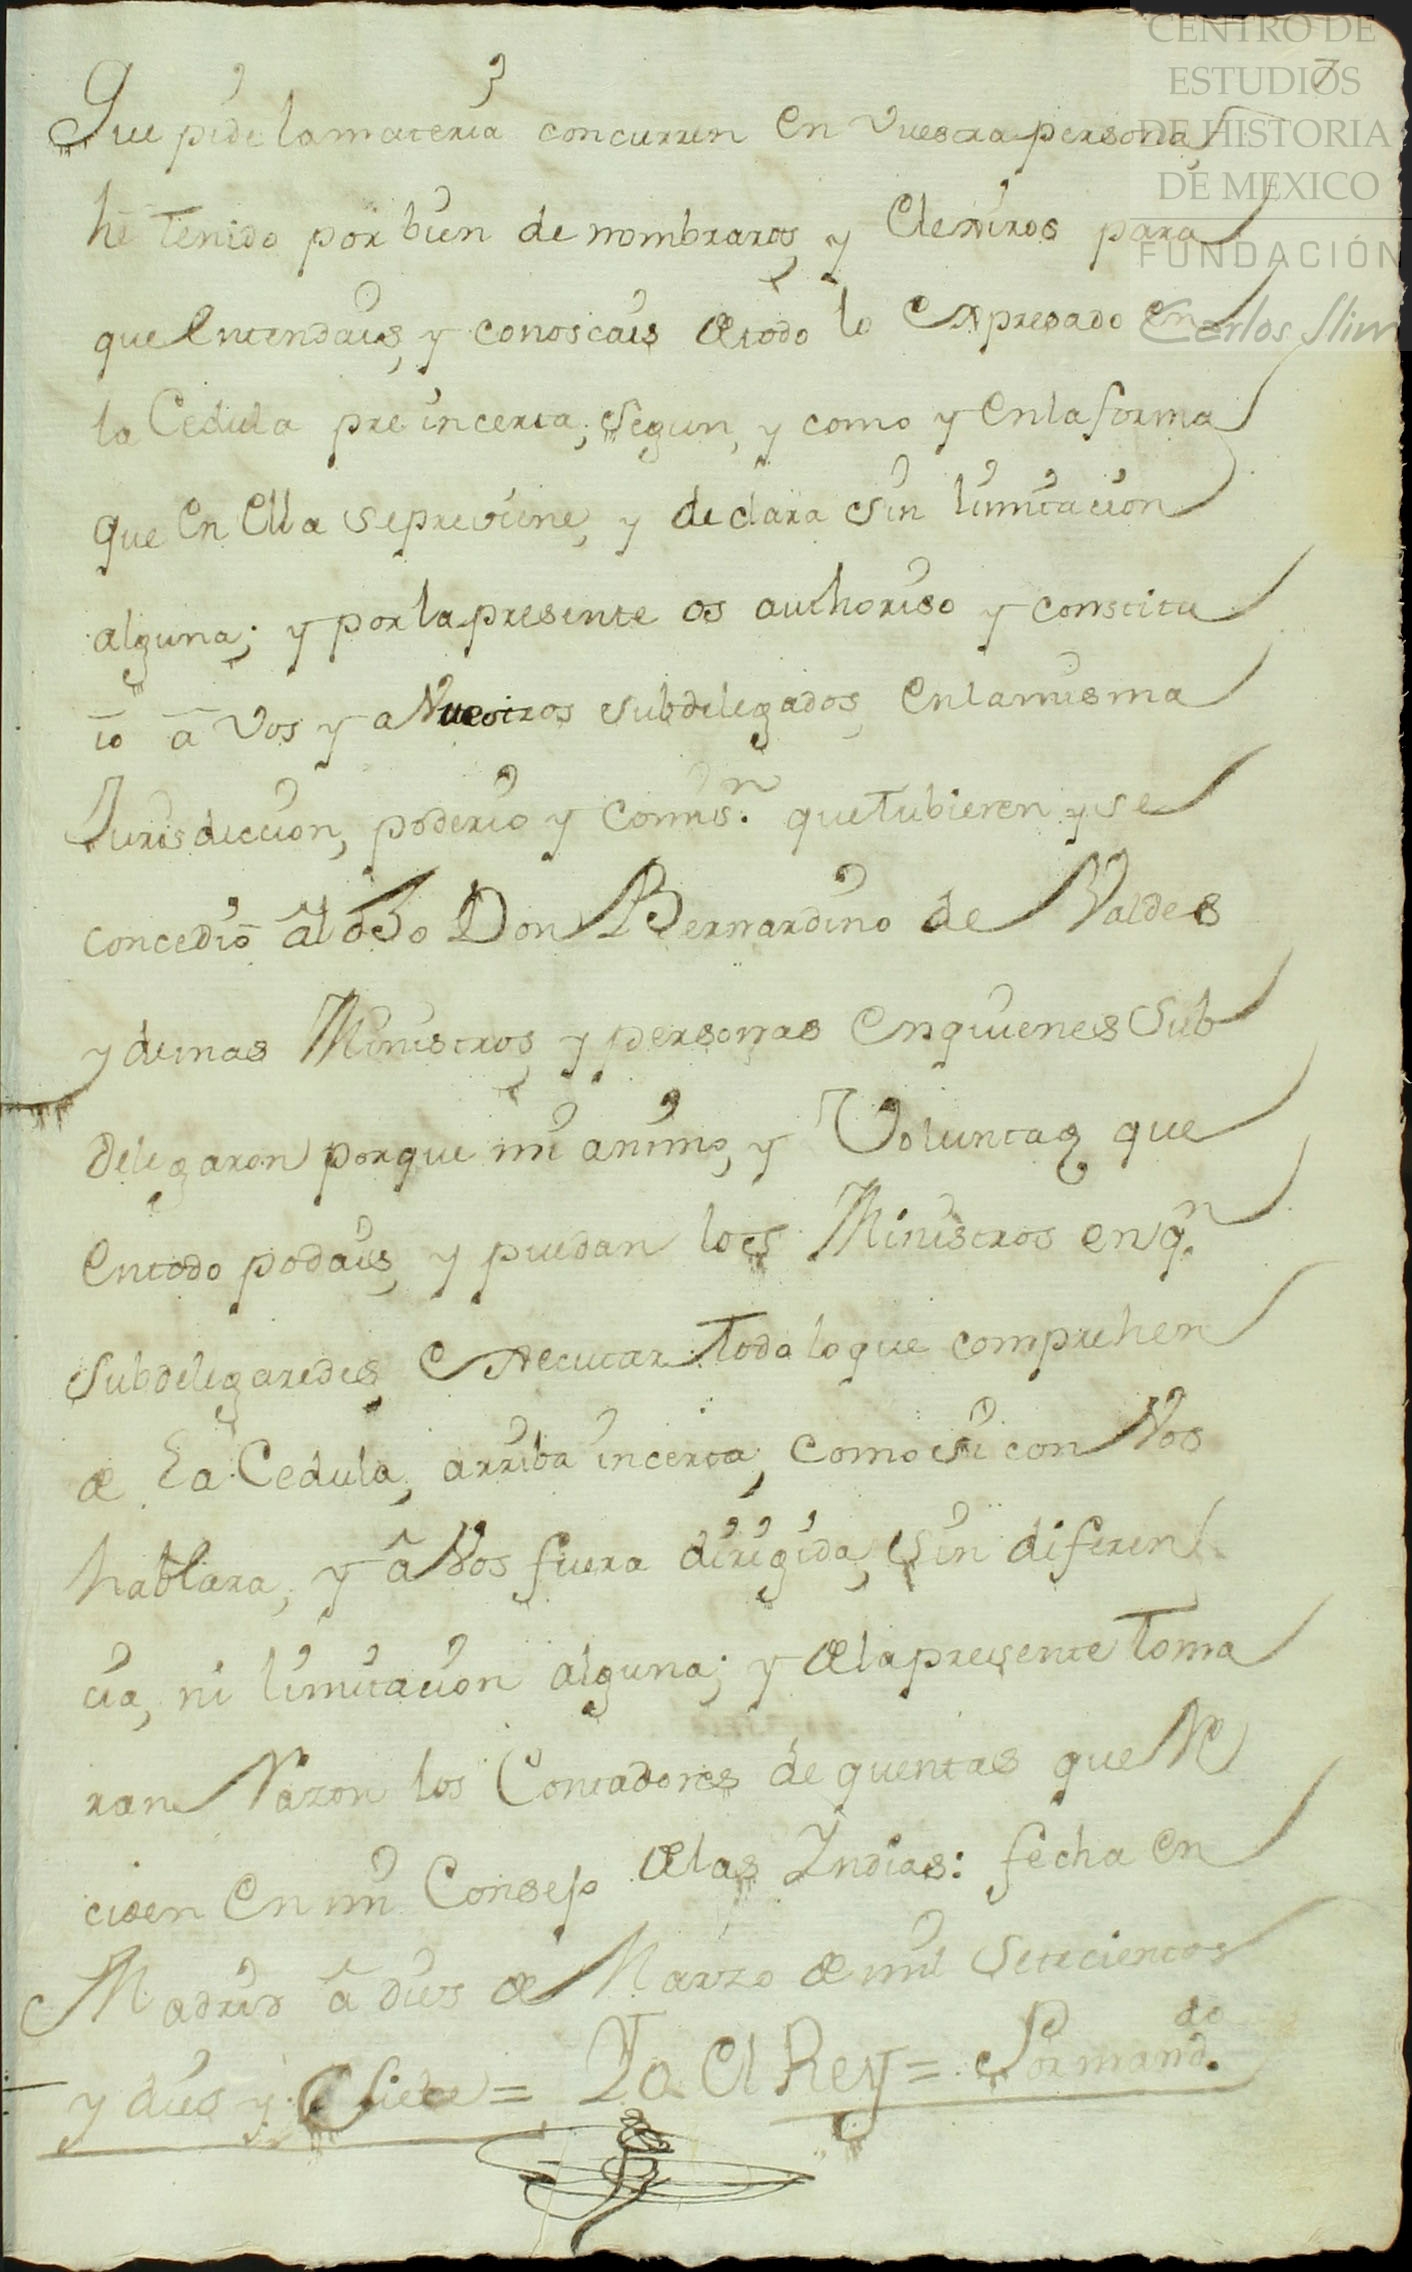 CENTRO DE
ESTUDIOS
DE HISTORIA
DE MEXICO
FUNDACIÓN
Carlos Slim
7
Que pide la materia concurren en Vuestra persona
he tenido por bien de nombraros, y Elexiros para
que entendais, y conoscais de todo lo expresado en
la Cedula preincerta; segun, y como y en la forma
que en Ella se previene, y declara sin limitacion
alguna; y por la presente os authoriso y constitu
io â Vos y a Vuestros subdelegados, en la misma
Jurisdiccion, poderio y comis.n que tubieren y se
concedio âl dho Don Bernardino de Valdes
y demas Ministros, y personas en quienes sub
delegaron porque mi animo, y Voluntad, que
en todo podais, y puedan los Ministros en q.n
subdelegaredes executar todo lo que comprehen
de La Cedula, arriba incerta, como si con Vos
hablara, y â Vos fuera dirigida, sin diferen
cia, ni limitacion alguna; y de la presente toma
ran Razon los Contadores de quentas que Re
ciden en mi Consejo de las Indias: fecha en
Madrid â dies de Marzo de mil setecientos
y dies y siete = Yo el Rey = Por mand.do